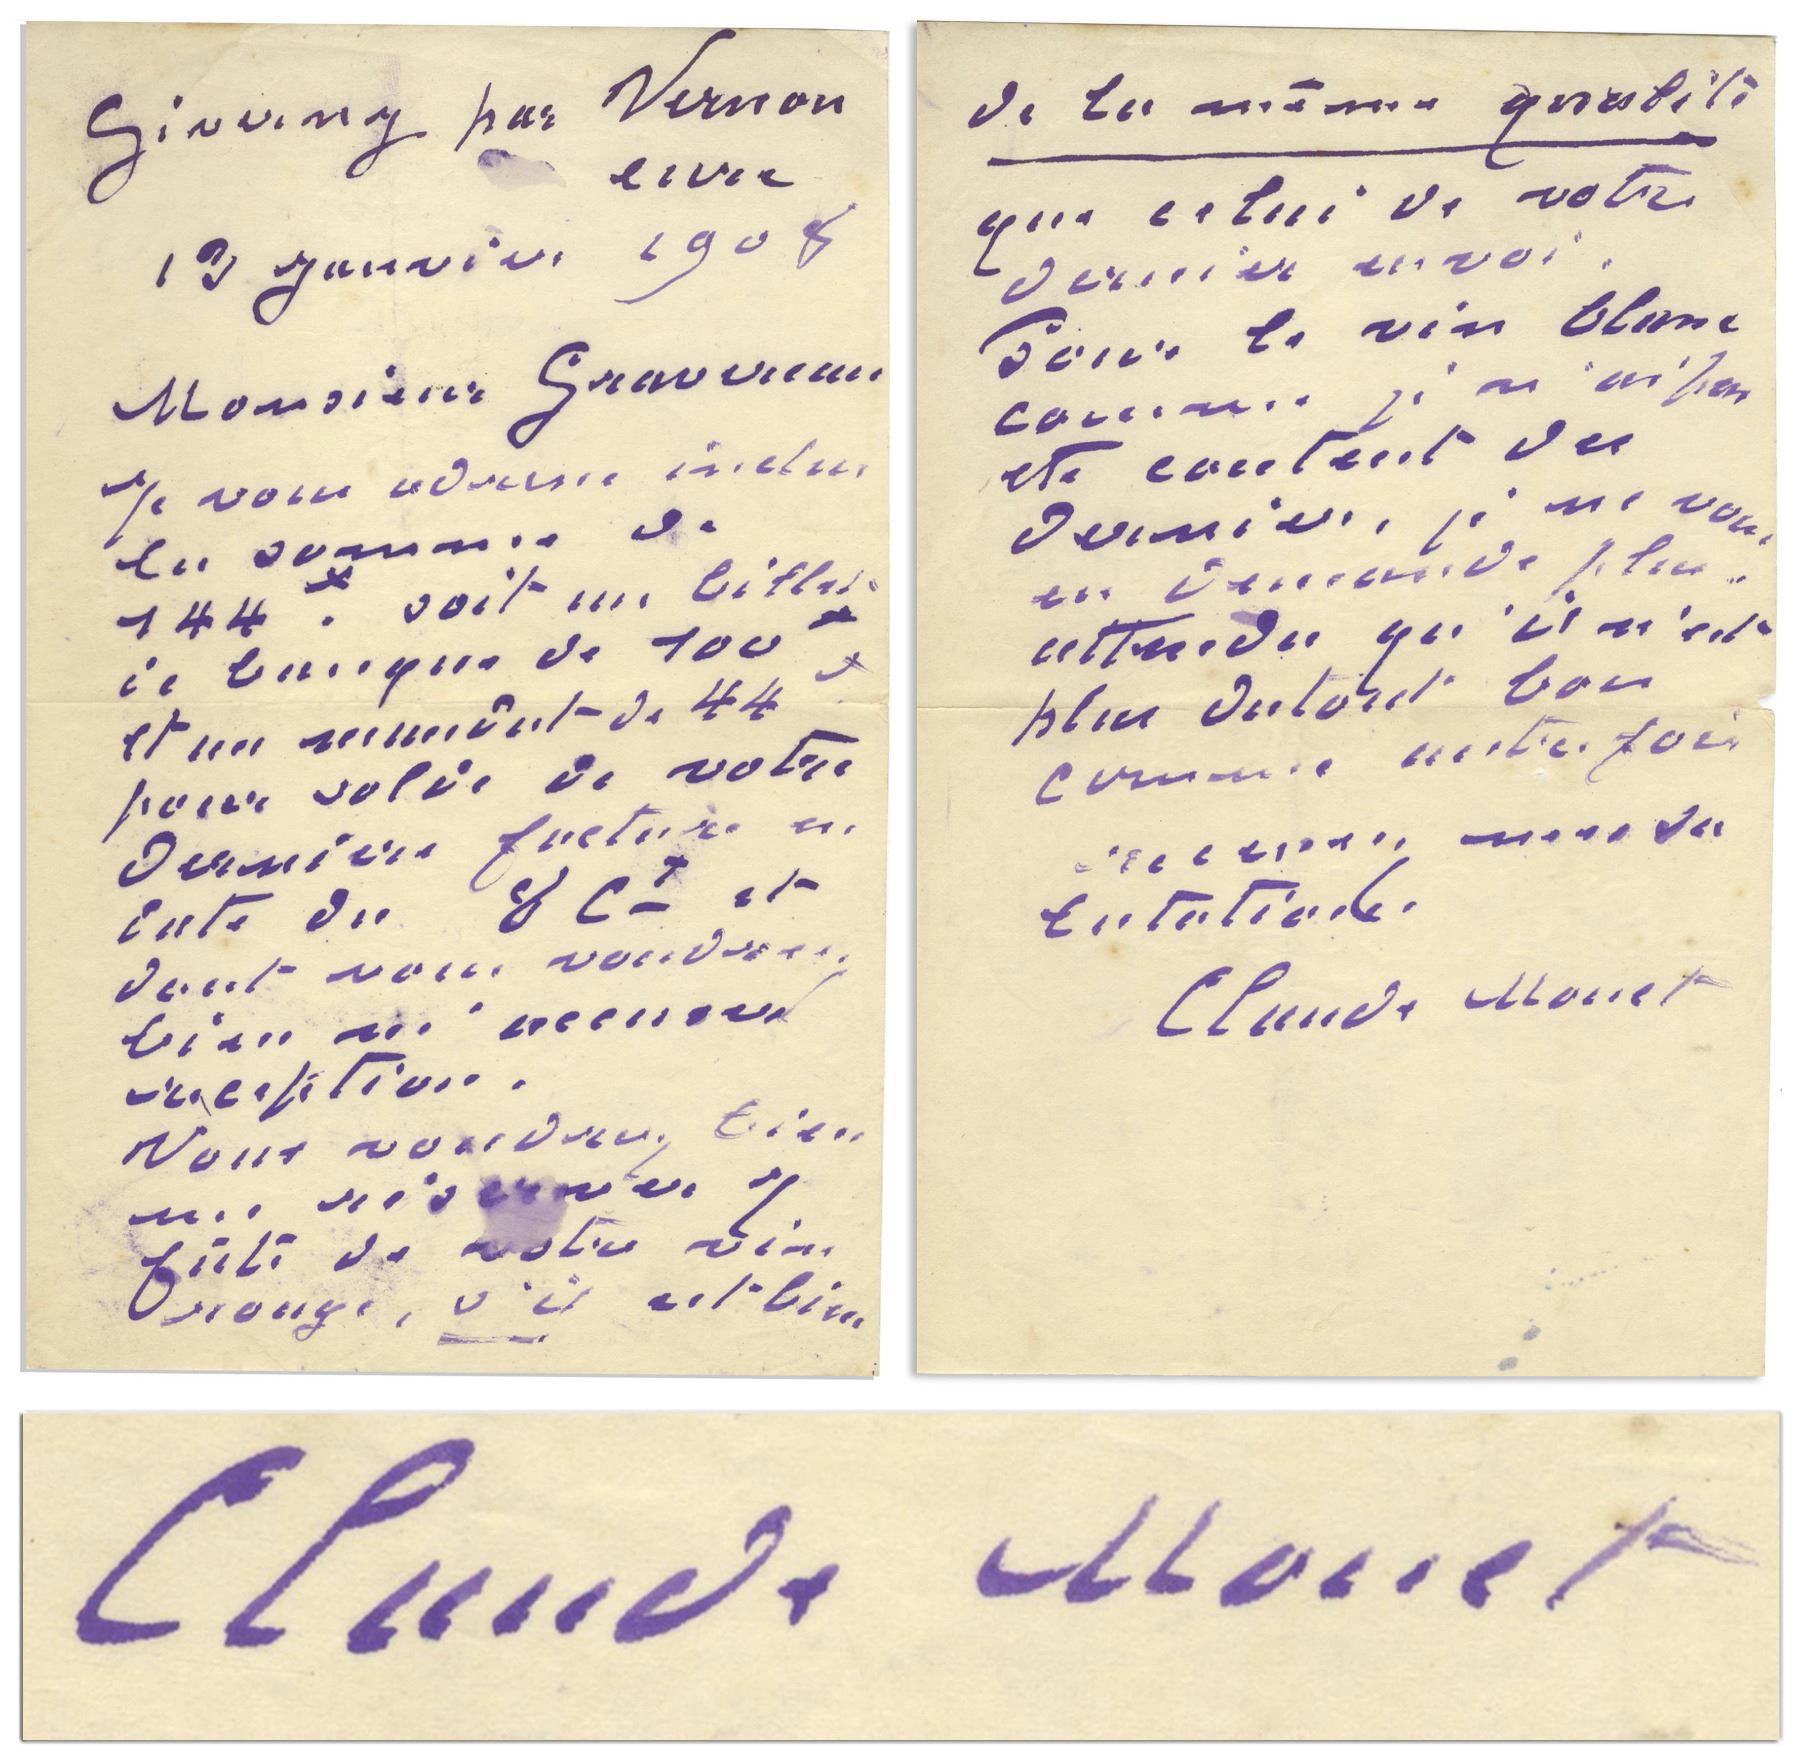 Giverny par Vernon
eure
13 janvier 1908
Monsieur
Je vous adresse inclus
la somme de
144 f. soit un billet
de banque de 100 f
et un mandat de 44 f
pour solde de votre
dernière facture en
date du 8 Ct et
dont vous voudrez
bien m'accuser
reception.
Vous voudrez bien
me réserver
fûts de votre vin
rouge, s'il est bien
de la même qualité
que celui de votre
dernier envoi.
Pour le vin blanc
comme je n'ai pas
été content du
dernier, je ne vous
en demande plus.
attendu qu'il n'est
plus dutout bon
comme autrefois
recevez mes
salutations.
Claude Monet
Claude Monet